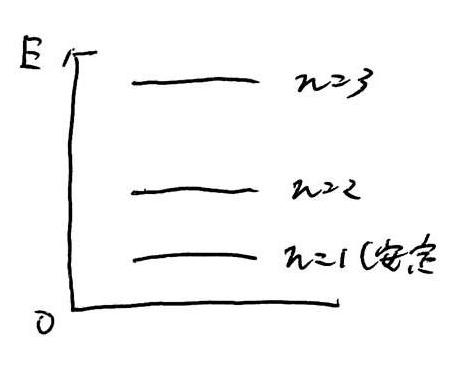 E
n=3
n=2
n=1 (安定
0